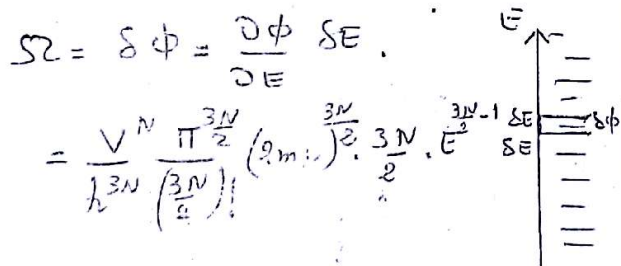 Ω = δφ = ∂φ/∂E δE .
= V^N/h^{3N} π^{3N/2}/(3N/2)! (2m)^{3N/2} . 3N/2 . E^{3N/2 -1} δE
E
δE
δφ